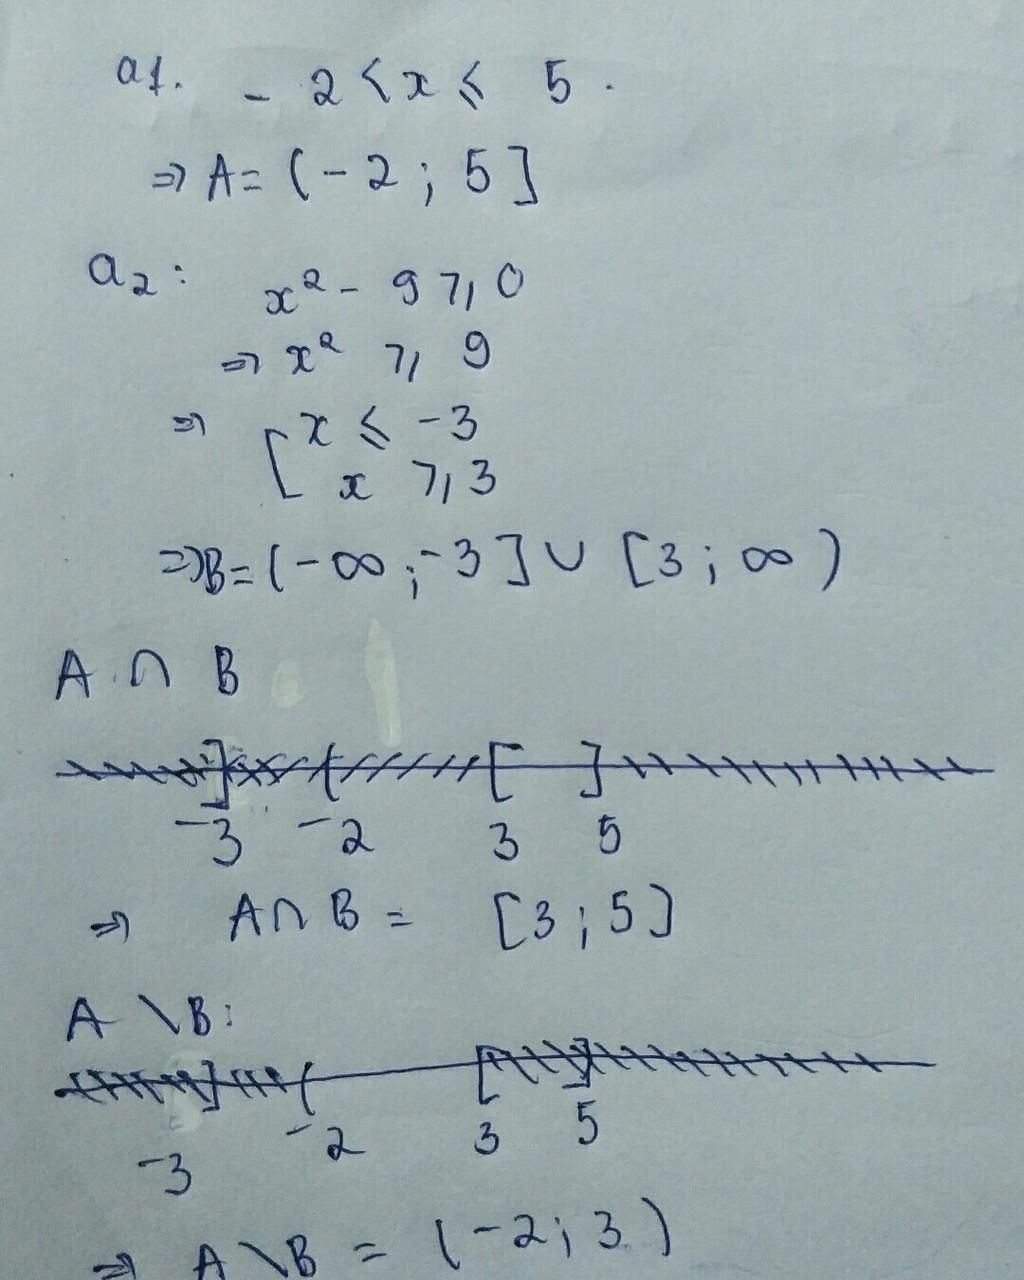 a1. - 2 < x ⩽ 5.
⇒ A = (-2 ; 5]
a₂ : x² - 9 ⩾ 0
⇒ x² ⩾ 9
⇒ [ x ⩽ -3
x ⩾ 3
⇒ B = (-∞ ; -3] ∪ [3 ; ∞)
A ∩ B
] ( [ ]
-3 -2 3 5
⇒ A ∩ B = [3 ; 5]
A \ B :
] ( [ ]
-3 -2 3 5
⇒ A \ B = (-2 ; 3)